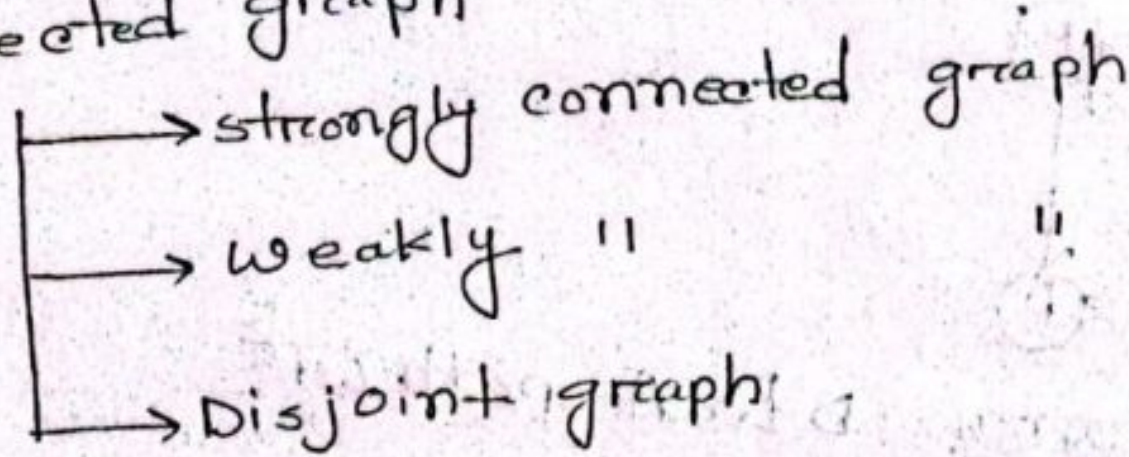 ected graph
→ strongly connected graph
→ weakly " "
→ Disjoint graph